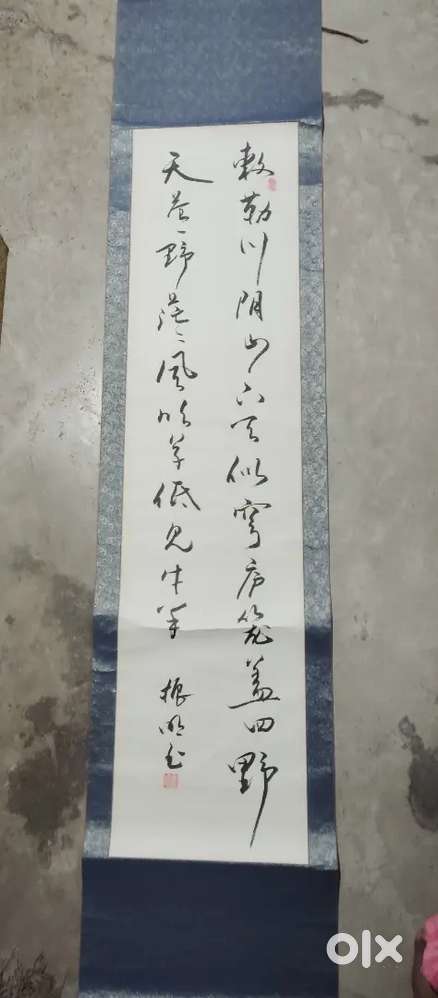 敕勒川阴山下天似穹庐笼盖四野
天苍々野茫々风吹草低见牛羊
振明书
olx